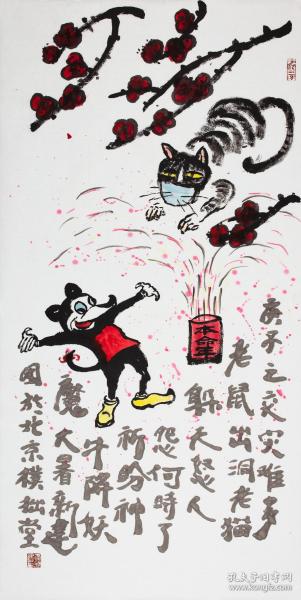 庚子之灾灾难多
老鼠出洞老猫
躲天怒人
怨何时了
祈盼神
牛降妖
魔大暑新建
国於北京樸拙堂
本命年
孔夫子旧书网
www.kongfz.com